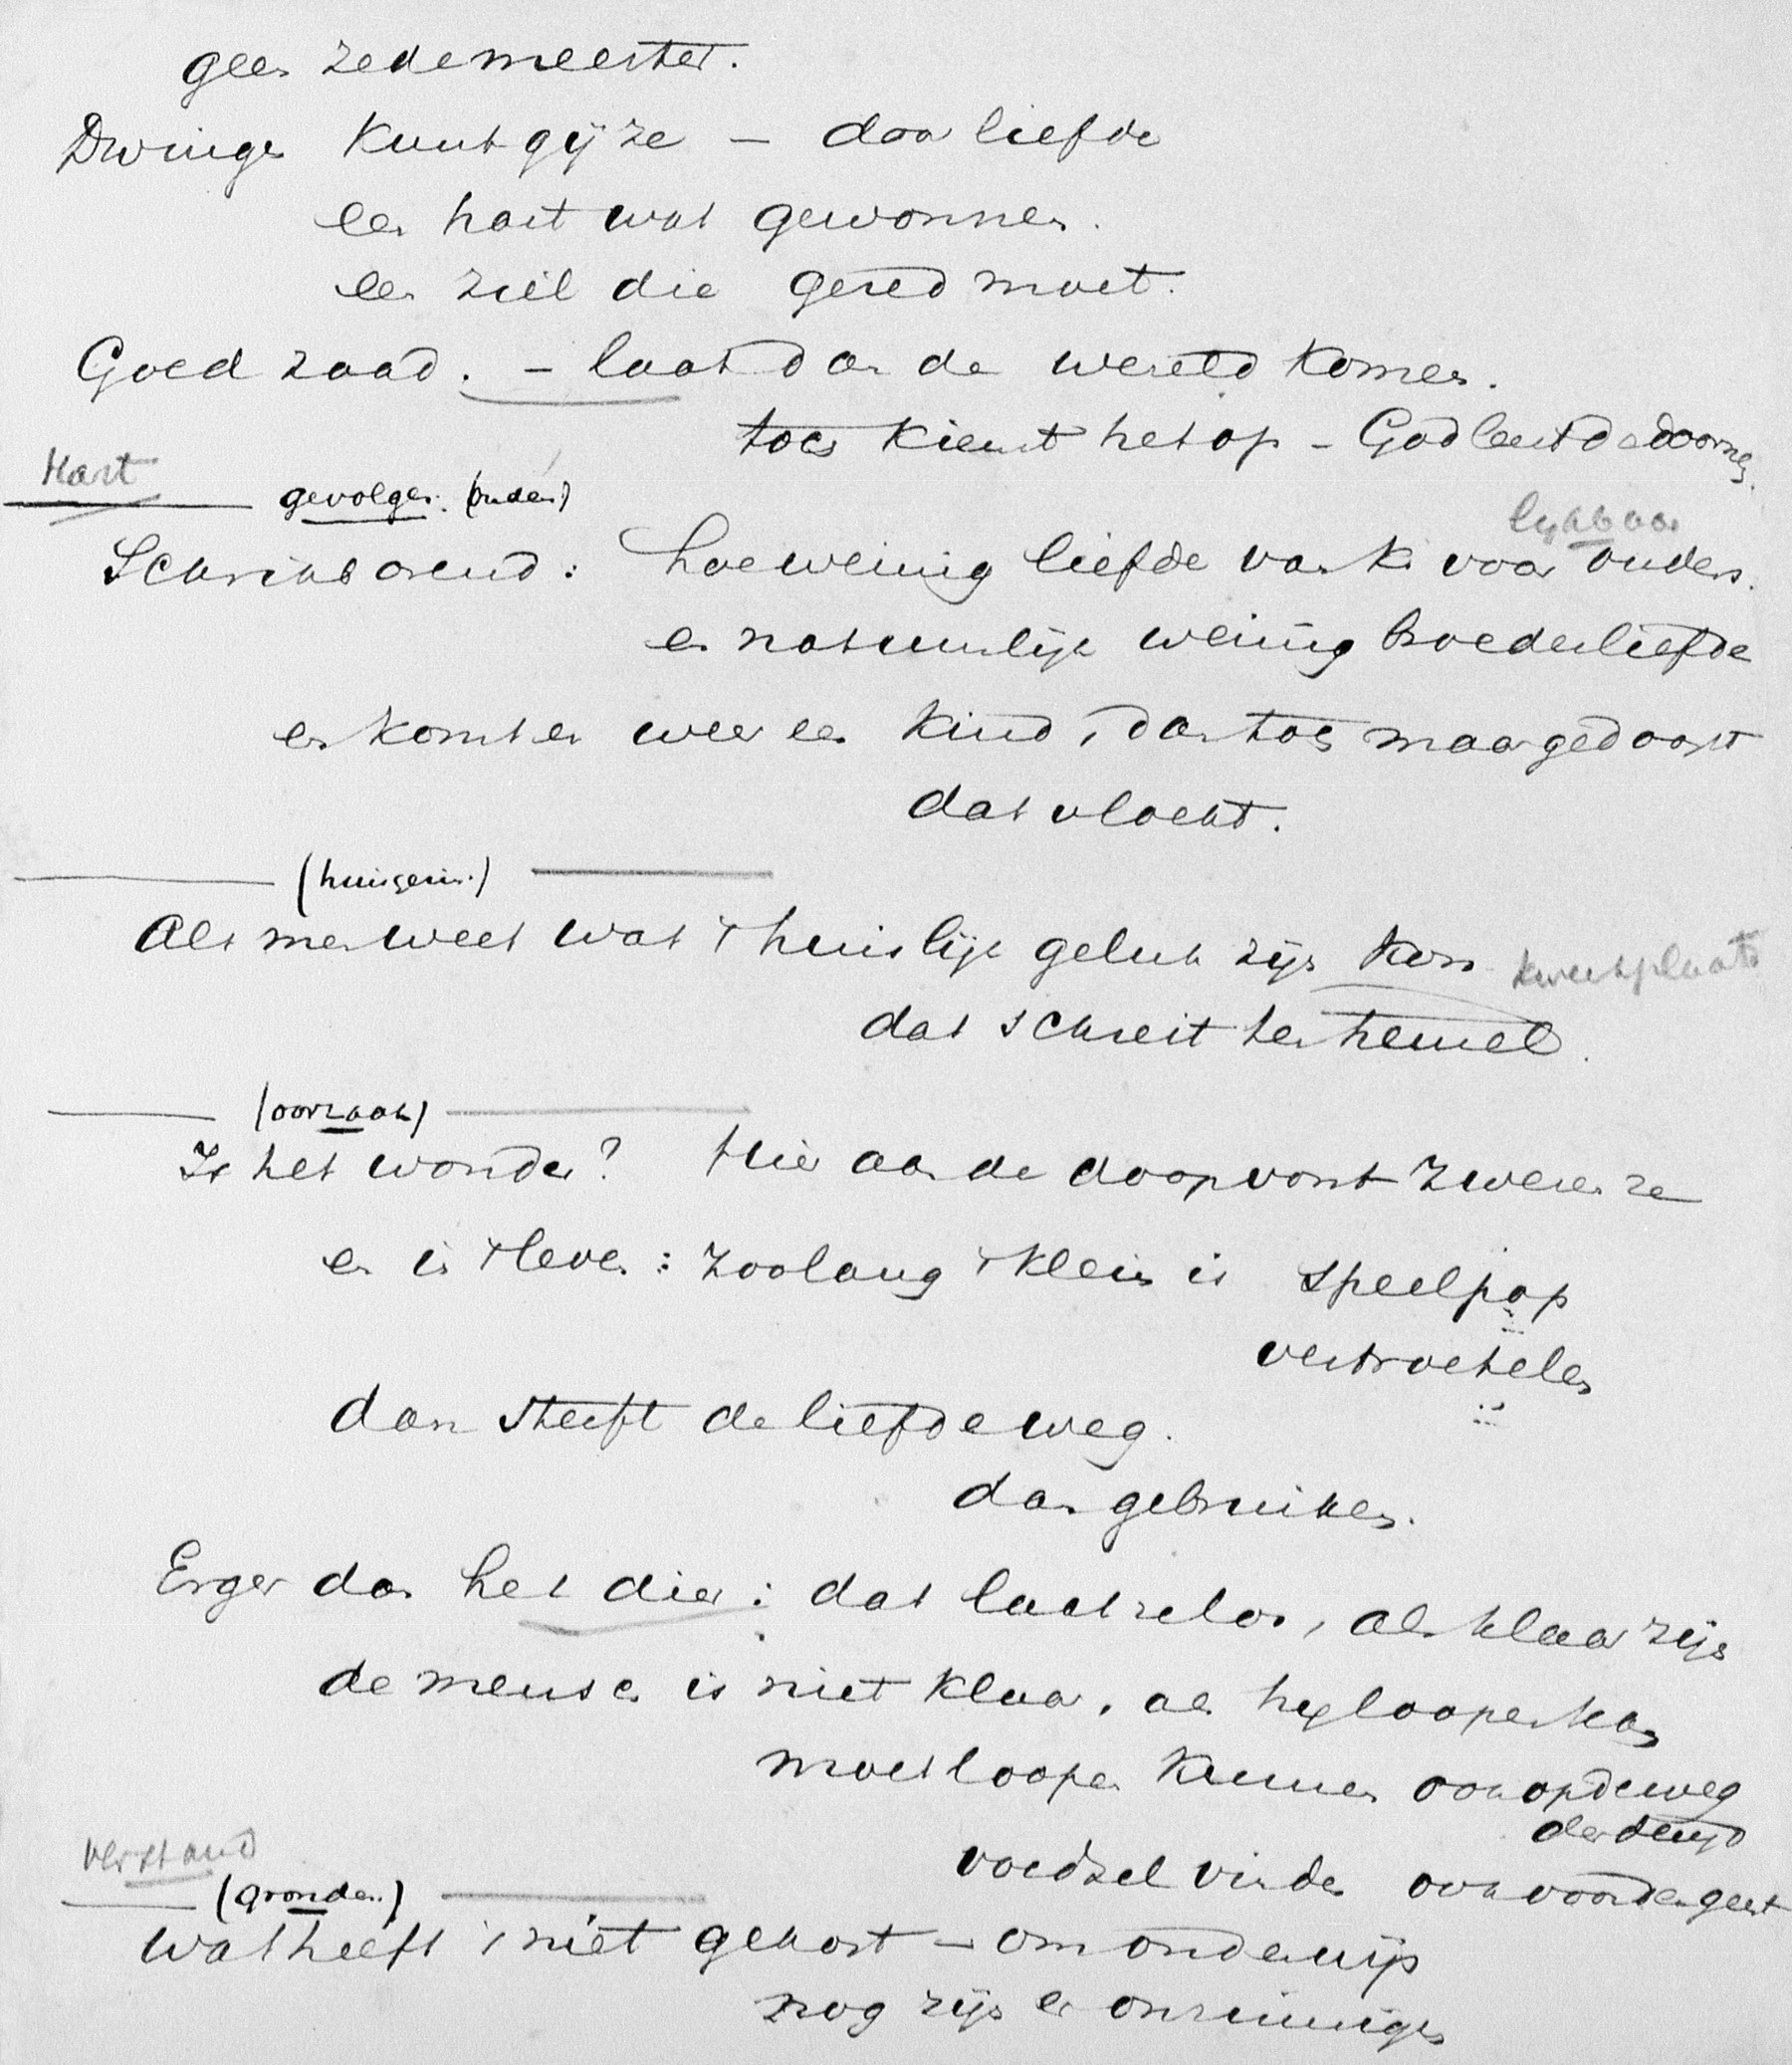 geen zedemeester.
Dwingen kunt gij ze — door liefde
een hart wat gewonnen.
een ziel die gered moet.
Goed zaad. — laat dan de wereld komen.
toch kiemt het op — God leert de doornen.
Hart
gevolgen. (ouders)
lijkbaar
Schrikbarend: hoe weinig liefde van k. voor ouders.
en natuurlijk weinig broederliefde
en komt er weer een kind, dan toch maar gedoopt
dat vloekt.
(huisgezin.)
Als men weet wat 't huislijk geluk zijn kon kweekplaats
dat schreit ten hemel.
(oorzaak)
Is het wonder? Hier aan de doopvont zweren ze
en in 't leven: zoolang 't klein is speelpop
vertroetelen
dan sterft de liefde weg.
dan gebruiken.
Erger dan het dier: dat laat ze los, als klaar zijn
de mensch is niet klaar, als hij loopen kan
moet loopen kunnen ook op de weg
der deugd
voedsel vinden ook voor den geest
Verstand
(gronden.)
Wat heeft 't niet gekost — om onderwijs
nog zijn er onzinnigen